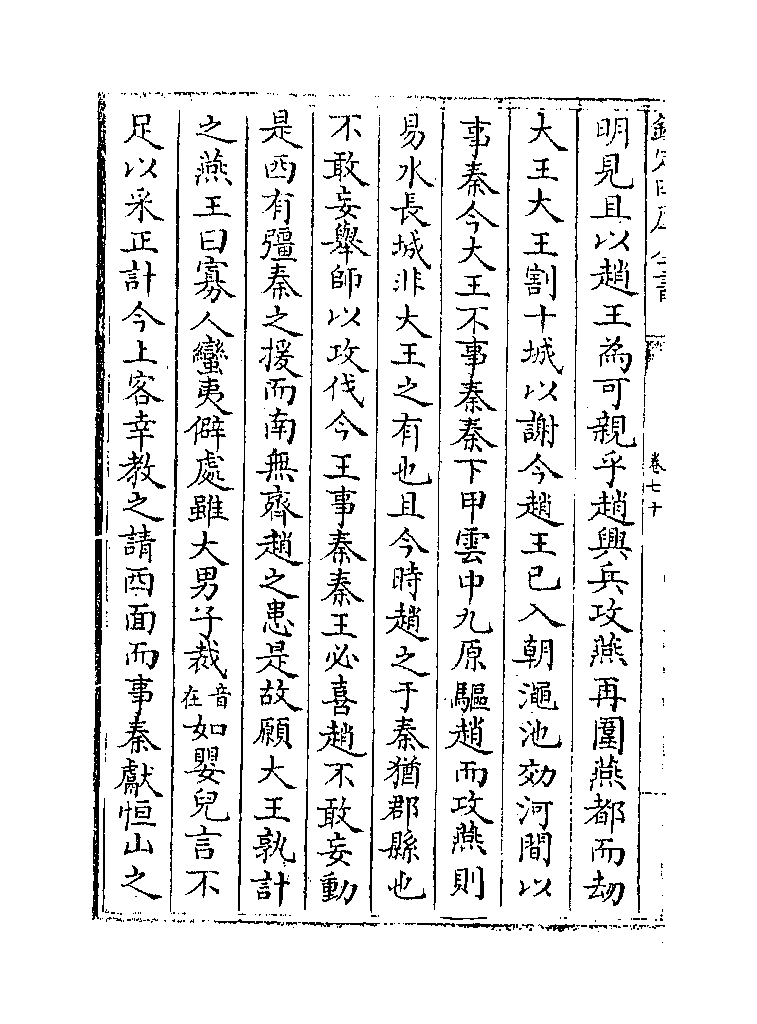 欽定四庫全書
卷七十
明見且以趙王為可親乎趙興兵攻燕再圍燕都而劫
大王大王割十城以謝今趙王已入朝澠池効河間以
事秦今大王不事秦秦下甲雲中九原驅趙而攻燕則
易水長城非大王之有也且今時趙之于秦猶郡縣也
不敢妄舉師以攻伐今王事秦秦王必喜趙不敢妄動
是西有彊秦之援而南無齊趙之患是故願大王孰計
之燕王曰寡人蠻夷僻處雖大男子裁音在如嬰兒言不
足以采正計今上客幸教之請西面而事秦獻恒山之